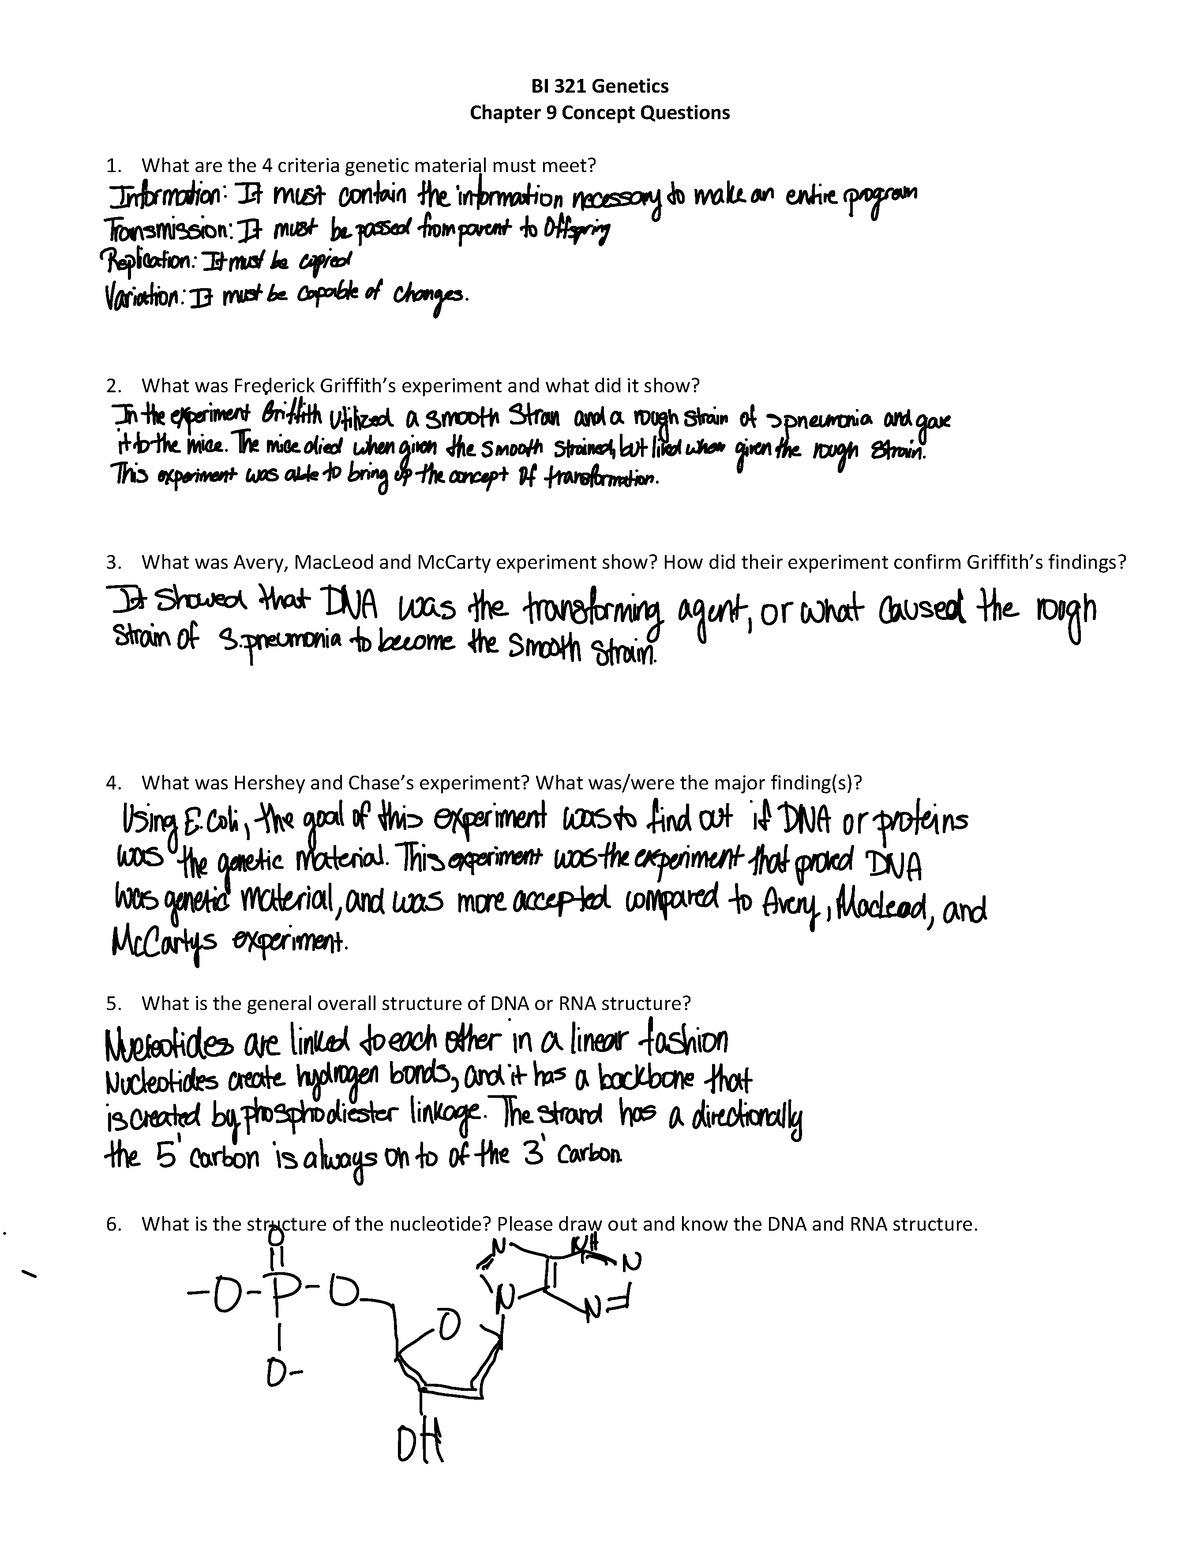 BI 321 Genetics
Chapter 9 Concept Questions
1. What are the 4 criteria genetic material must meet?
Information: It must contain the information necessary to make an entire program
Transmission: It must be passed from parent to Offspring
Replication: It must be copied
Variation: It must be capable of changes.
2. What was Frederick Griffith's experiment and what did it show?
In the experiment Griffith utilized a smooth Stran and a rough strain of spneumonia and gave
it to the mice. The mice died when given the smooth strained, but lied when given the rough strain.
This experiment was able to bring up the concept of transformation.
3. What was Avery, MacLeod and McCarty experiment show? How did their experiment confirm Griffith's findings?
It showed that DNA was the transforming agent, or what caused the rough
strain of S.pneumonia to become the smooth strain.
4. What was Hershey and Chase's experiment? What was/were the major finding(s)?
Using E. Coli, the goal of this experiment was to find out if DNA or proteins
was the genetic material. This experiment was the experiment that proved DNA
was genetic material, and was more accepted compared to Avery, Macleod, and
McCartys experiment.
5. What is the general overall structure of DNA or RNA structure?
Nucleotides are linked to each other in a linear fashion
Nucleotides create hydrogen bonds, and it has a backbone that
is created by phosphodiester linkage. The strand has a directionally
the 5' carbon is always on to of the 3' carbon
6. What is the structure of the nucleotide? Please draw out and know the DNA and RNA structure.
O
N NH N
-O-P-O N N
O
O-
OH